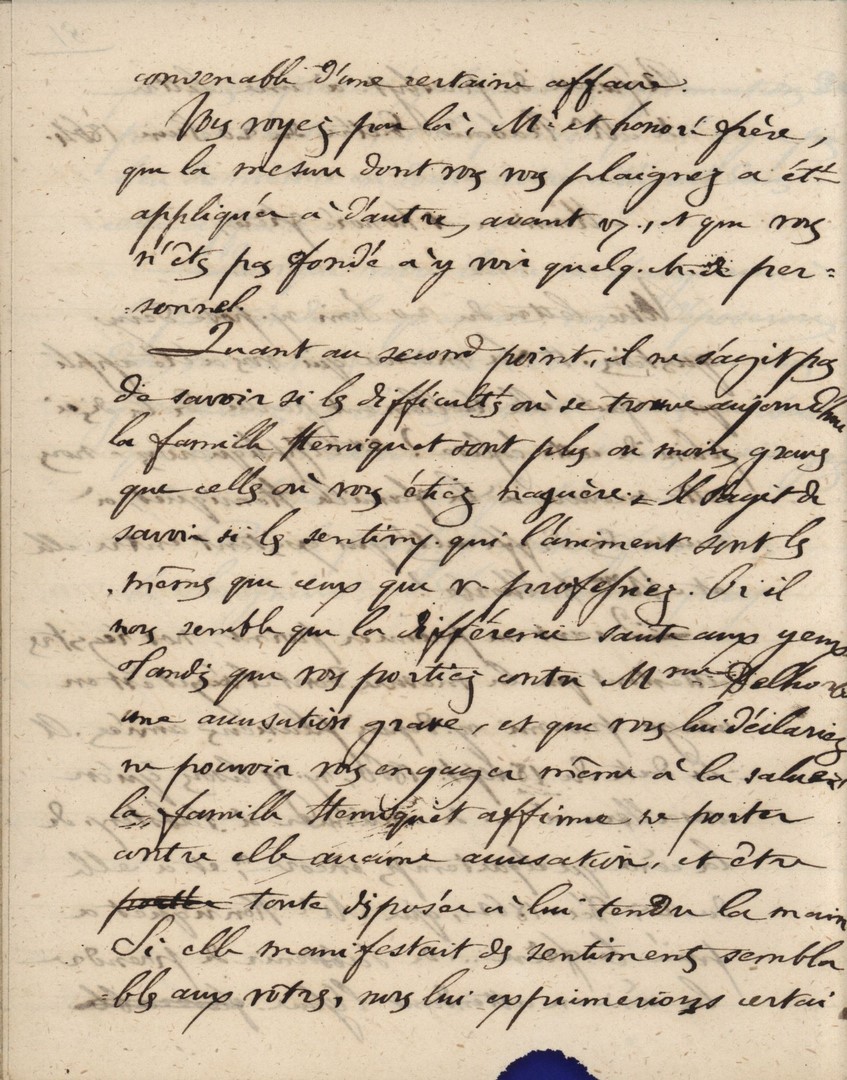 convenable d'une certaine affaire.
Vous voyez par là, Mr et honoré frère,
que la mesure dont vous vous plaignez a étt
appliquée à d'autres, avant v., et que vous
n'êtes pas fondé à y voir quelq. ch. de per=
=sonnel.
Quant au second point, il ne s'agit pas
de savoir si les difficultés où se trouve aujourd'hui
la famille Hemiquet sont plus ou moins graves
que celles où vous étiez naguère. Il s'agit de
savoir si les sentim. qui l'animent sont les
mêmes que ceux que v. professiez. Or il
nous semble que la différence saute aux yeux
Tandis que vous portiez contre Mme
une accusation grave, et que vous lui déclariez
ne pouvoir vous engager même à la saluer,
la famille Hemiquet affirme ne porter
contre elle aucune accusation, et être
toute disposée à lui tendre la main
Si elle manifestait des sentiments sembla
=bles aux vôtres, nous lui exprimerions certai